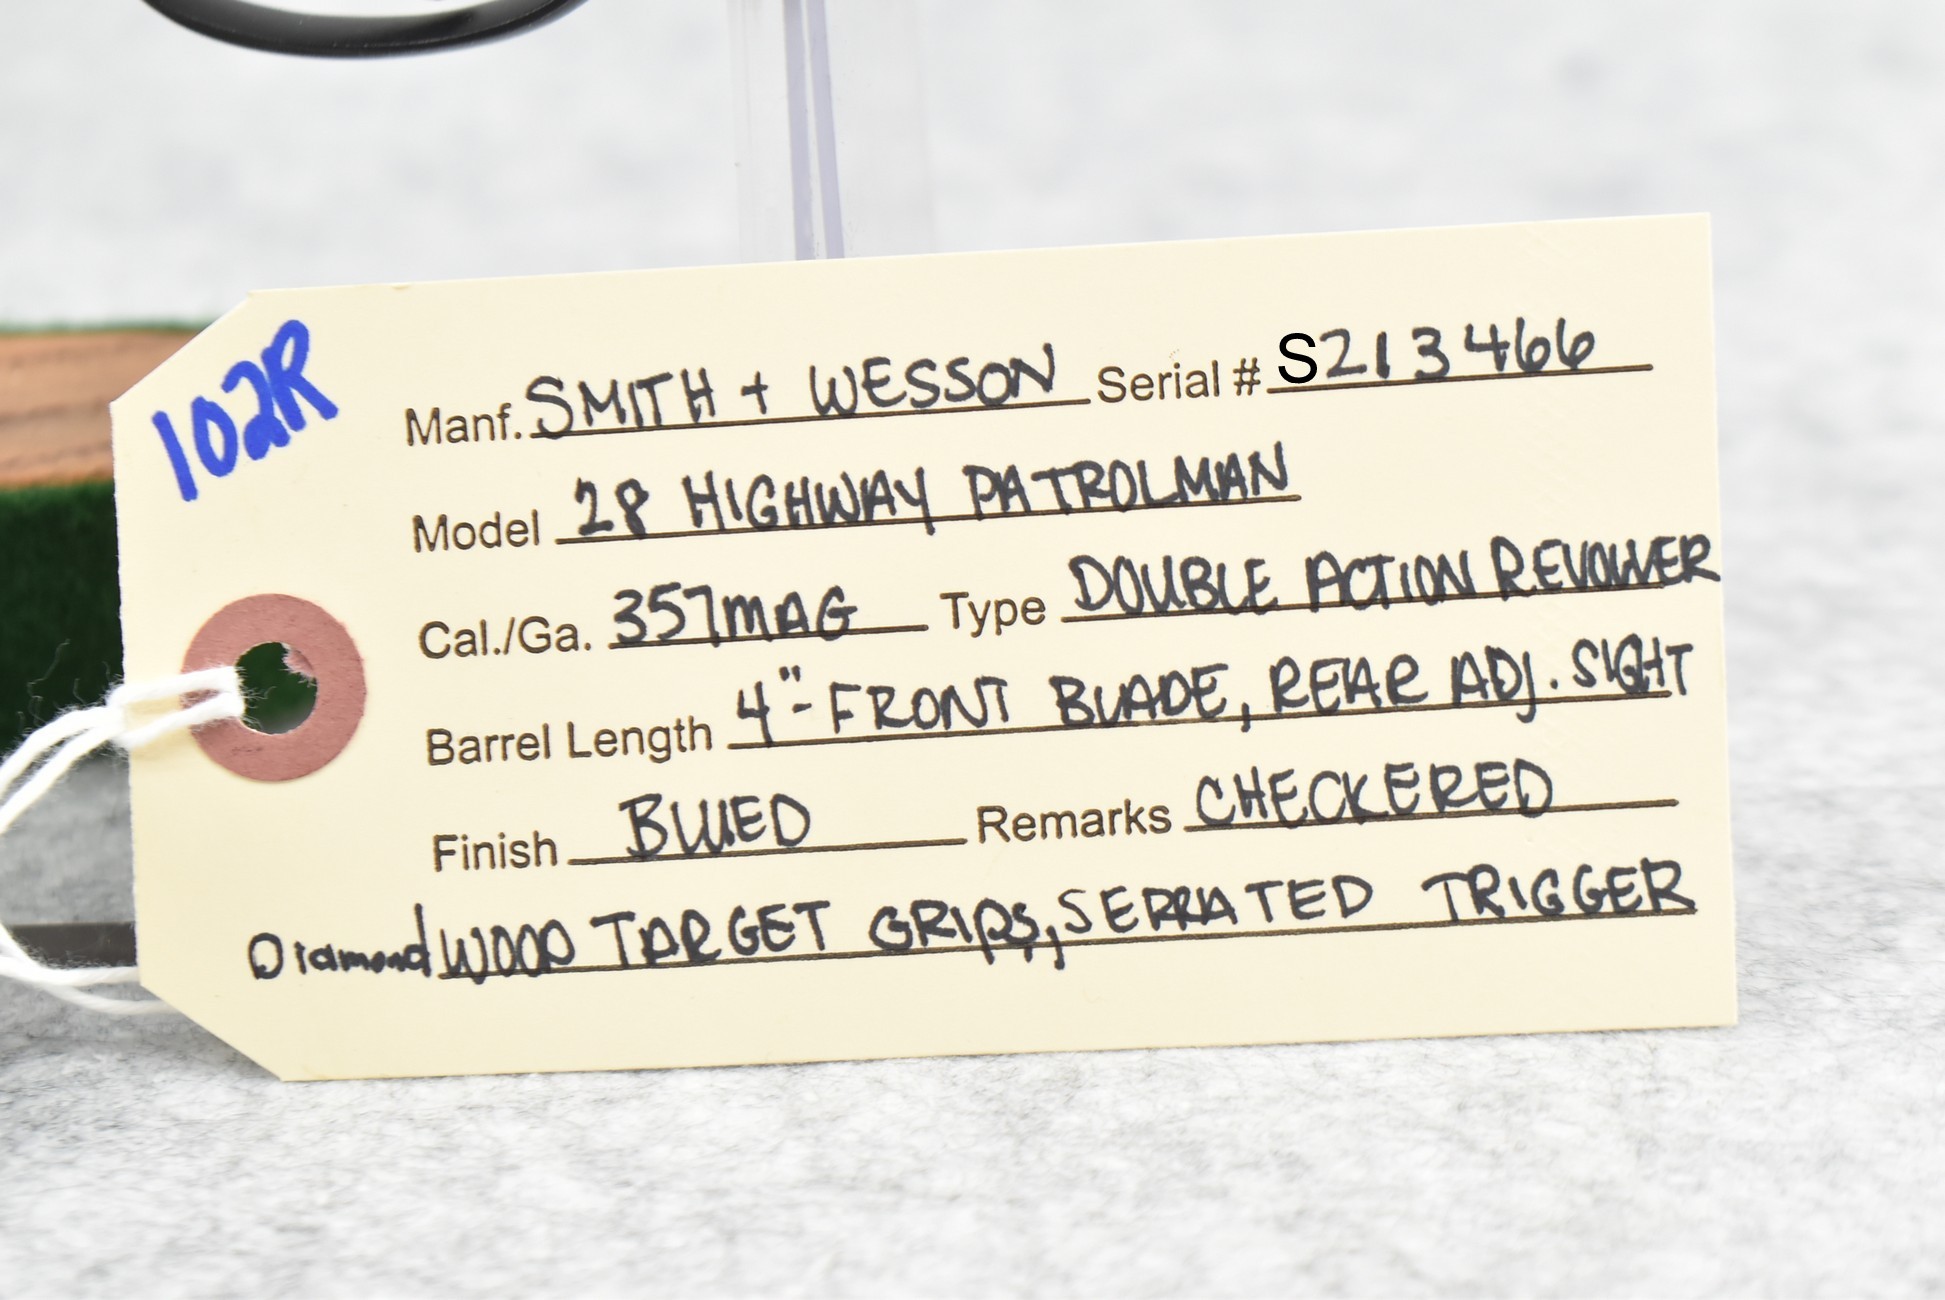 102R
Manf. SMITH + WESSON Serial # S213466
Model 28 HIGHWAY PATROLMAN
Cal./Ga. 357MAG Type DOUBLE ACTION REVOLVER
Barrel Length 4"- FRONT BLADE, REAR ADJ. SIGHT
Finish BLUED Remarks CHECKERED
Diamond WOOD TARGET GRIPS, SERRATED TRIGGER